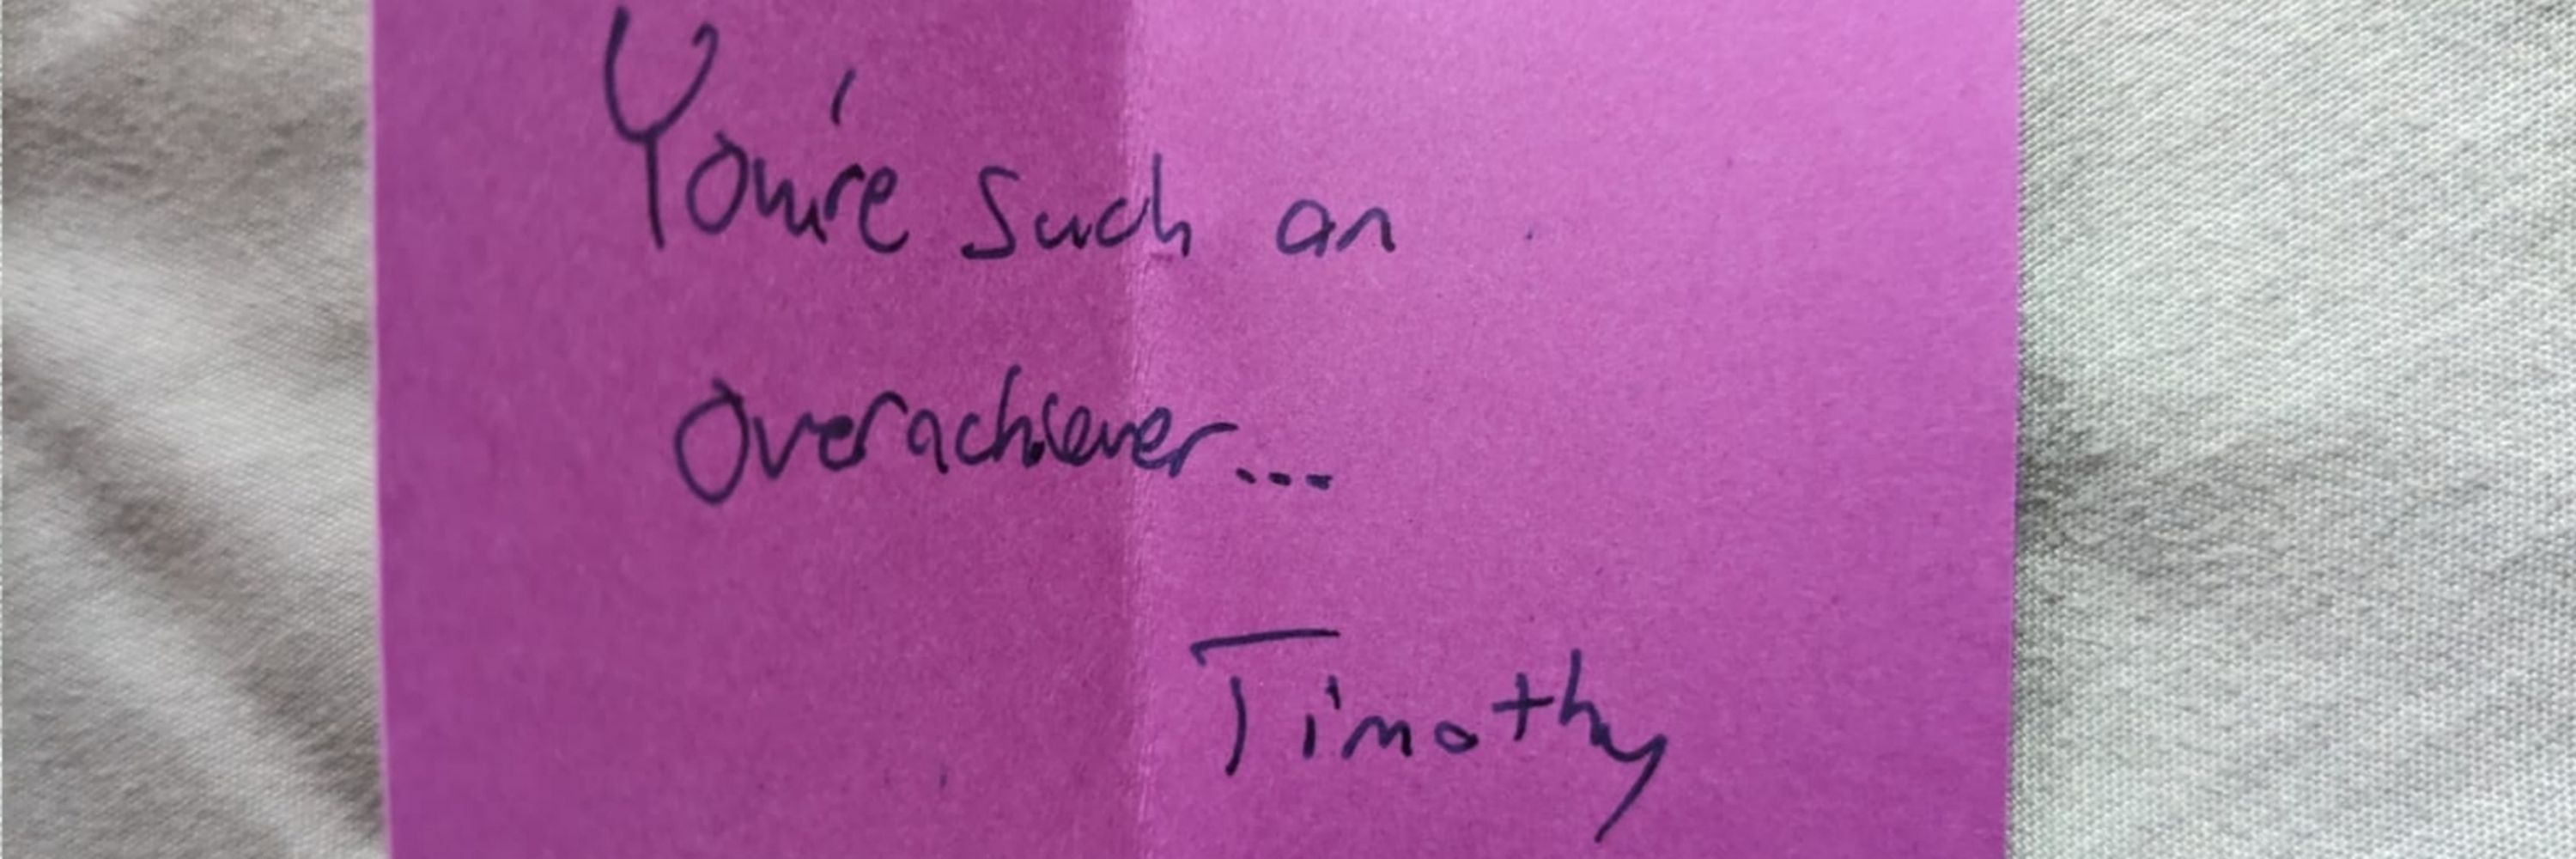 You're such an
overachiever...
Timothy